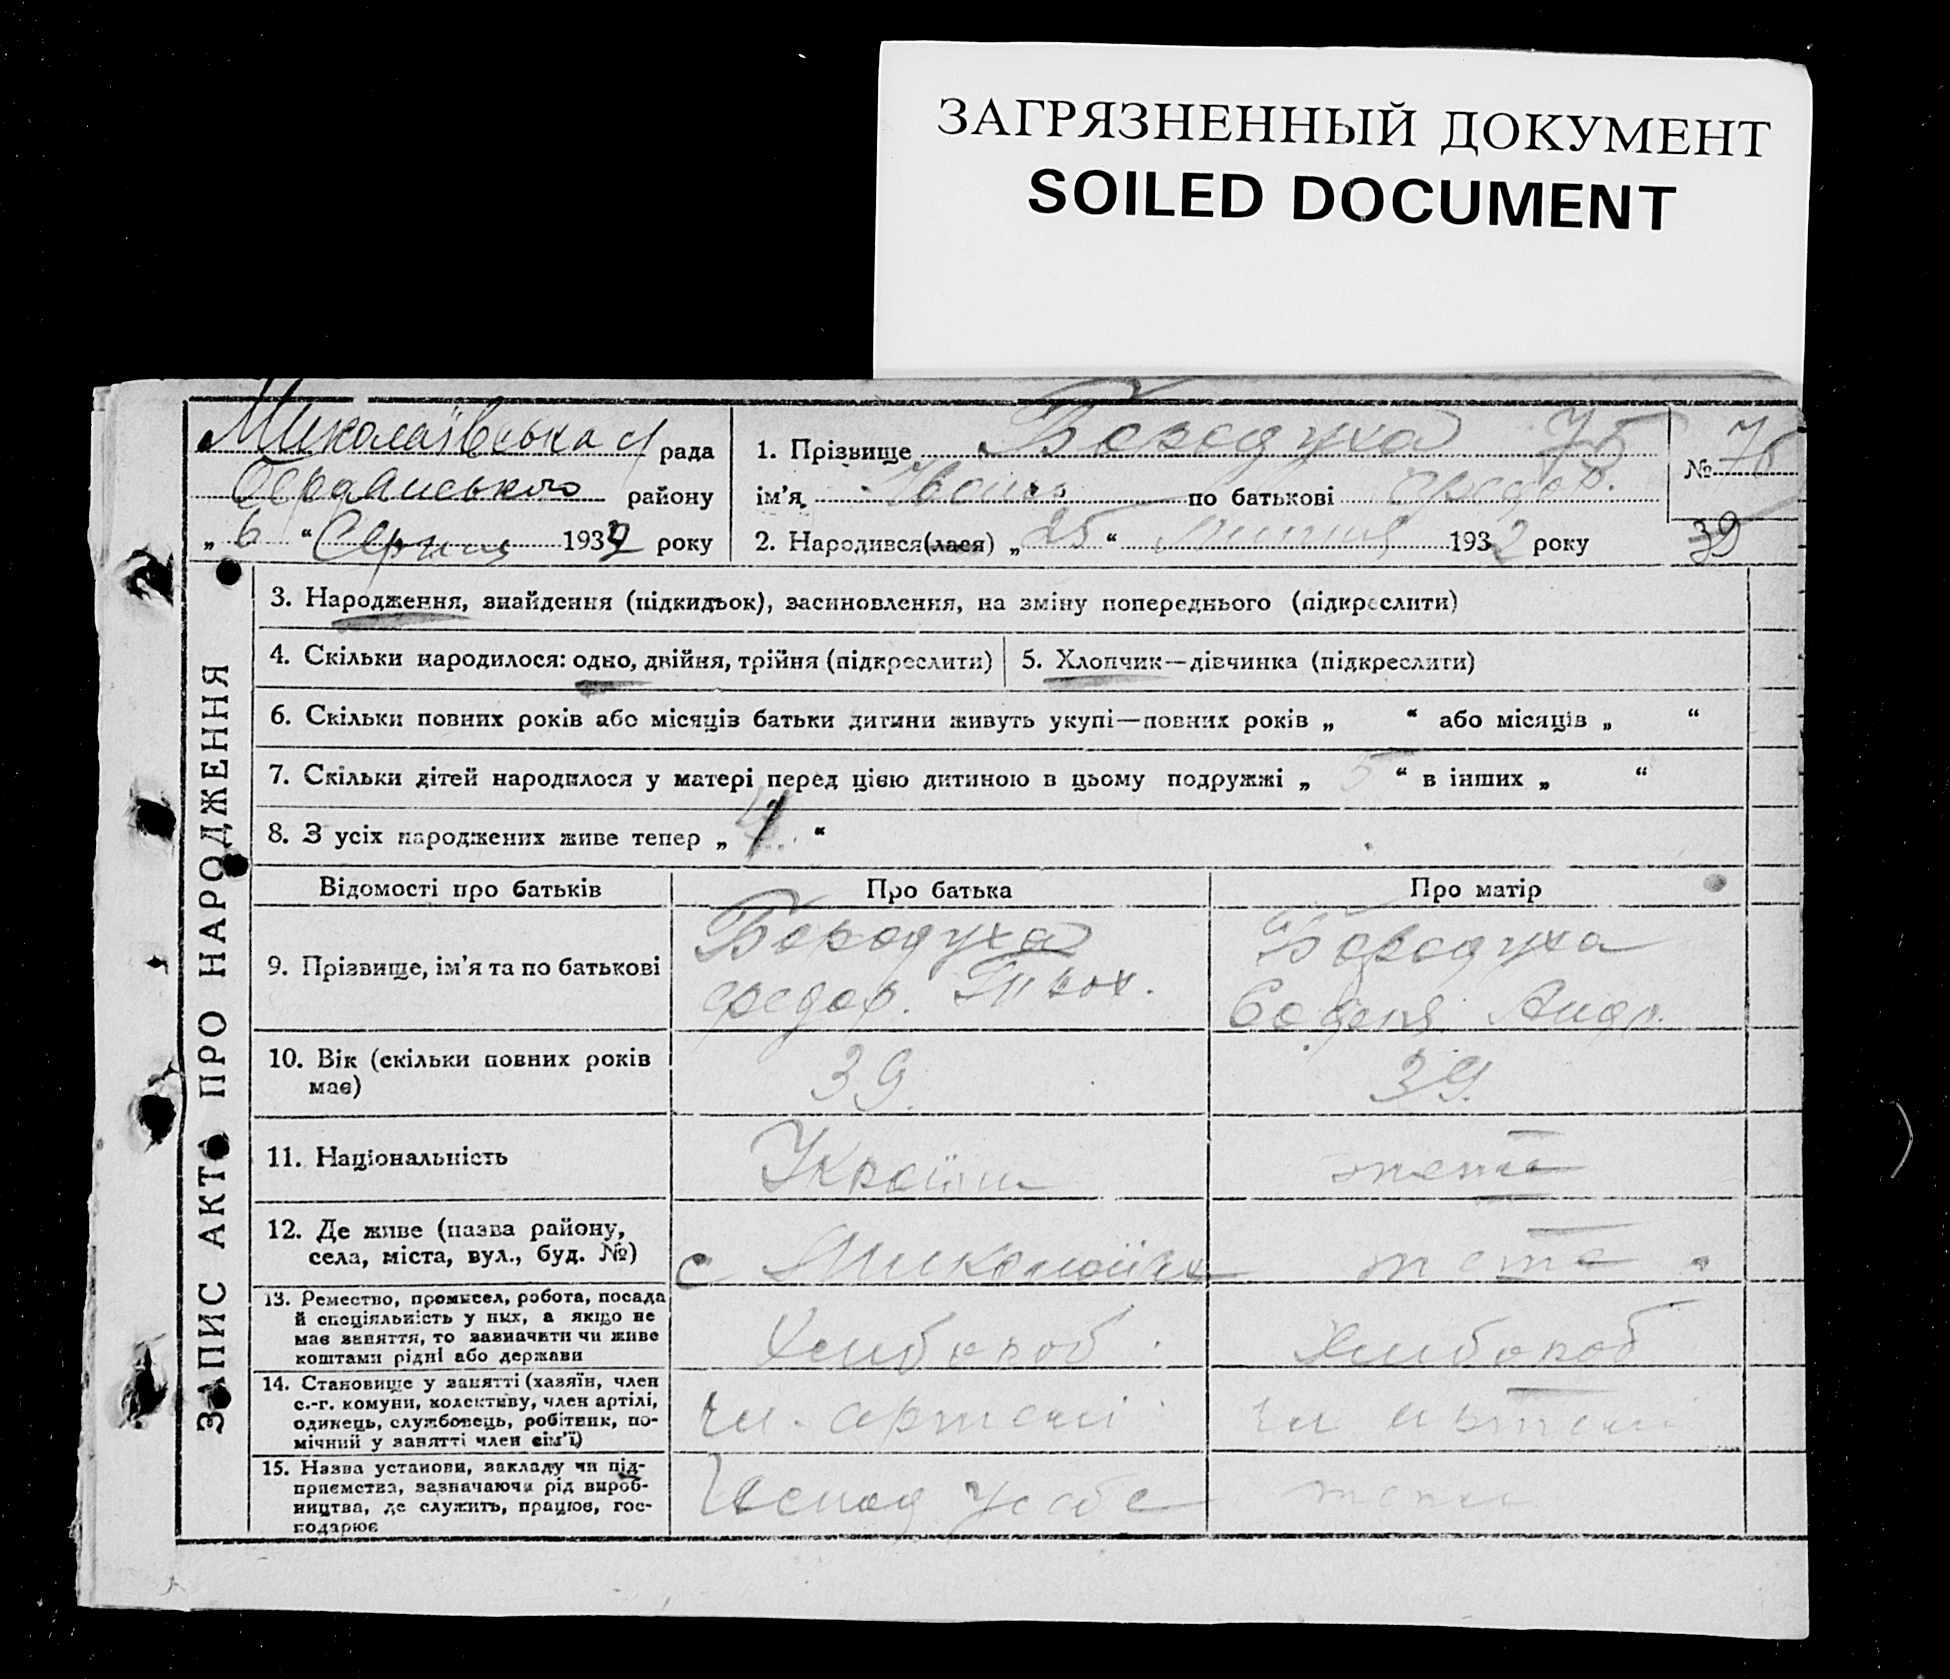 ЗАГРЯЗНЕННЫЙ ДОКУМЕНТ
SOILED DOCUMENT
Миколаївська с/ рада
Бердянського району
„ 6 “ Серпня 1932 року
1. Прізвище Бородуха 75
ім’я Іван по батькові Федор.
2. Народився(лася) „ 25 “ липня 1932 року
№ 78
39
ЗАПИС АКТ ПРО НАРОДЖЕННЯ
3. Народження, знайдення (підкидьок), засиновлення, на зміну попереднього (підкреслити)
4. Скільки народилося: одно, двійня, трійня (підкреслити)
5. Хлопчик—дівчинка (підкреслити)
6. Скільки повних років або місяців батьки дитини живуть укупі—повних років „ “ або місяців „ “
7. Скільки дітей народилося у матері перед цією дитиною в цьому подружжі „ 5 “ в інших „ “
8. З усіх народжених живе тепер „ “
Відомості про батьків Про батька Про матір
9. Прізвище, ім’я та по батькові
Бородуха
Федор.
Бородуха
Андр.
10. Вік (скільки повних років
має)
39. 39.
11. Національність
Україн теж
12. Де живе (назва району,
села, міста, вул., буд. №)
с Миколаївка
13. Ремество, промисел, робота, посада
й спеціяльність у них, а якщо не
має заняття, то зазначити чи живе
коштами рідні або держави
Хлибороб. Хлибороб
14. Становище у занятті (хазяїн, член
с.-г. комуни, колективу, член артілі,
одинець, службовець, робітник, по-
мічний у занятті член сім’ї)
чл. артелі чл артели
15. Назва установи, закладу чи під-
приємства, зазначаючи рід вироб-
ництва, де служить, працює, гос-
подарює